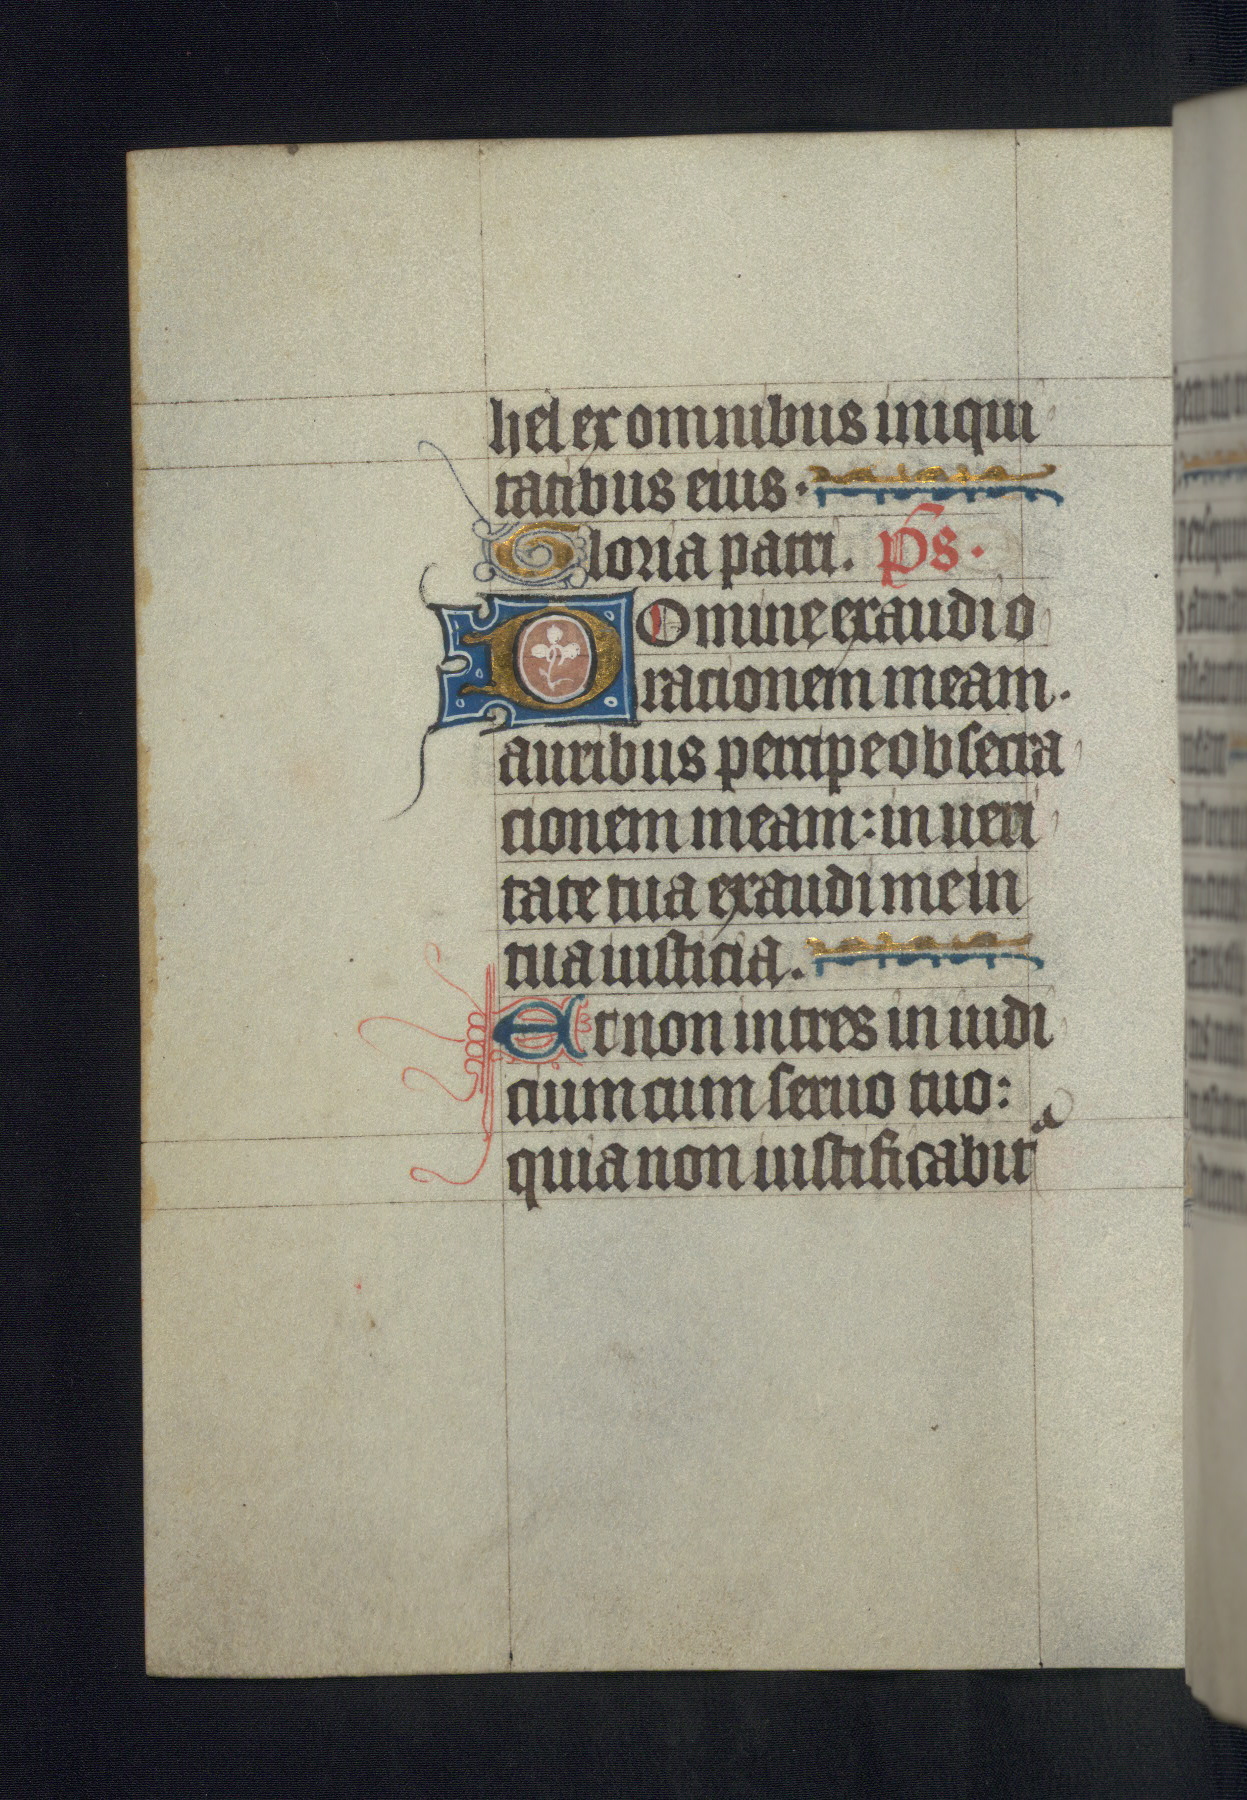 hel ex omnibus iniqui
tatibus eius.
Gloria patri. Ps.
Domine exaudi o
rationem meam.
auribus percipe obsecra
cionem meam: in ueri
tate tua exaudi me in
tua iusticia.
Et non intres in iudi
cium cum seruo tuo:
quia non iustificabit